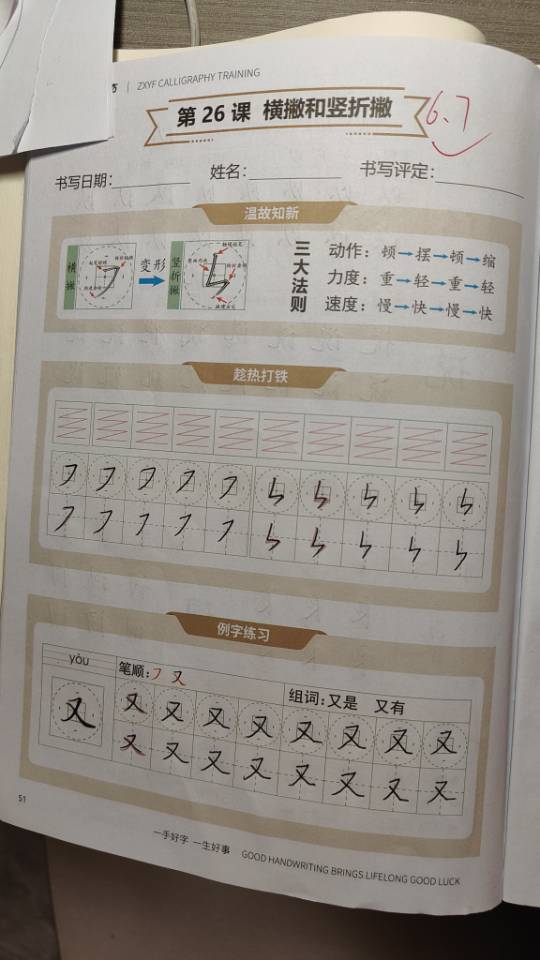 ZXYF CALLIGRAPHY TRAINING
第 26 课 横撇和竖折撇
6.7
书写日期: 姓名: 书写评定:
温故知新
横撇
变形
竖折撇
三大法则
动作: 顿→摆→顿→缩
力度: 重→轻→重→轻
速度: 慢→快→慢→快
趁热打铁
例字练习
yòu
笔顺:フ 又
组词:又是 又有
又
又 又 又 又 又 又 又 又
又 又 又 又 又 又 又 又
51
一手好字 一生好事 GOOD HANDWRITING BRINGS LIFELONG GOOD LUCK